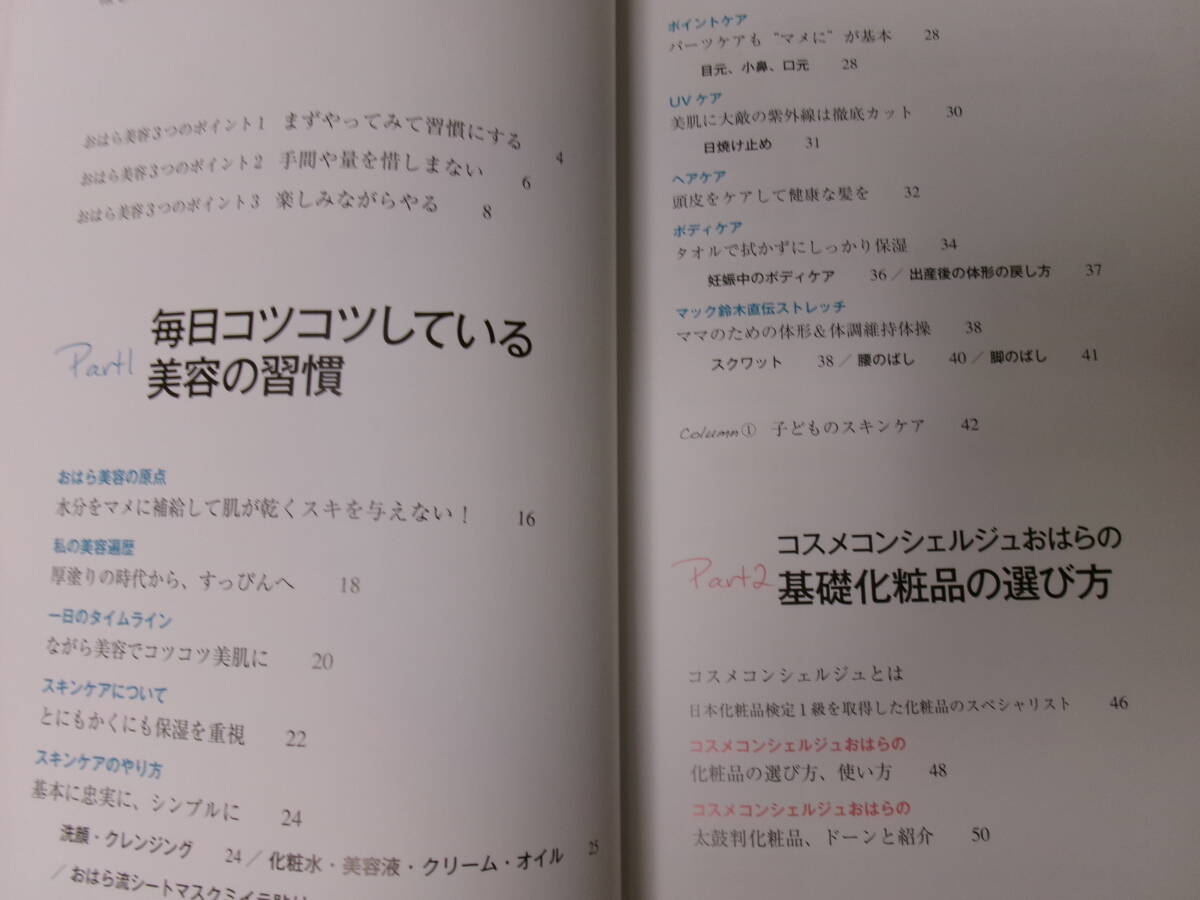 おはら美容3つのポイント1 まずやってみて習慣にする 4
おはら美容3つのポイント2 手間や量を惜しまない 6
おはら美容3つのポイント3 楽しみながらやる 8
Part1 毎日コツコツしている
美容の習慣
おはら美容の原点
水分をマメに補給して肌が乾くスキを与えない! 16
私の美容遍歴
厚塗りの時代から、すっぴんへ 18
一日のタイムライン
ながら美容でコツコツ美肌に 20
スキンケアについて
とにもかくにも保湿を重視 22
スキンケアのやり方
基本に忠実に、シンプルに 24
洗顔・クレンジング 24/化粧水・美容液・クリーム・オイル 25
/おはら流シートマスクミイラ貼り
ポイントケア
パーツケアも“マメに”が基本 28
目元、小鼻、口元 28
UVケア
美肌に大敵の紫外線は徹底カット 30
日焼け止め 31
ヘアケア
頭皮をケアして健康な髪を 32
ボディケア
タオルで拭かずにしっかり保湿 34
妊娠中のボディケア 36/出産後の体形の戻し方 37
マック鈴木直伝ストレッチ
ママのための体形&体調維持体操 38
スクワット 38/腰のばし 40/脚のばし 41
Column① 子どものスキンケア 42
コスメコンシェルジュおはらの
Part2 基礎化粧品の選び方
コスメコンシェルジュとは
日本化粧品検定1級を取得した化粧品のスペシャリスト 46
コスメコンシェルジュおはらの
化粧品の選び方、使い方 48
コスメコンシェルジュおはらの
太鼓判化粧品、ドーンと紹介 50